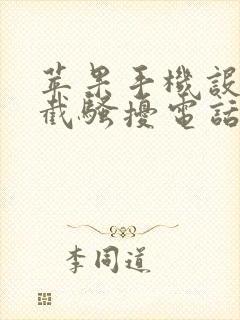 苹果手機設
截騷擾電話
李同道